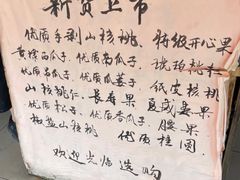 新货上市
优质手剥山核桃、特级开心果
黄绿西瓜子、优质南瓜子、琥珀桃仁
优质西瓜子、优质瓜蒌子、纸皮核桃
山核桃仁、长寿果、夏威夷果
优质松子、优质杏瓜子、腰果
椒盐山核桃、优质桂圆、
欢迎光临选购